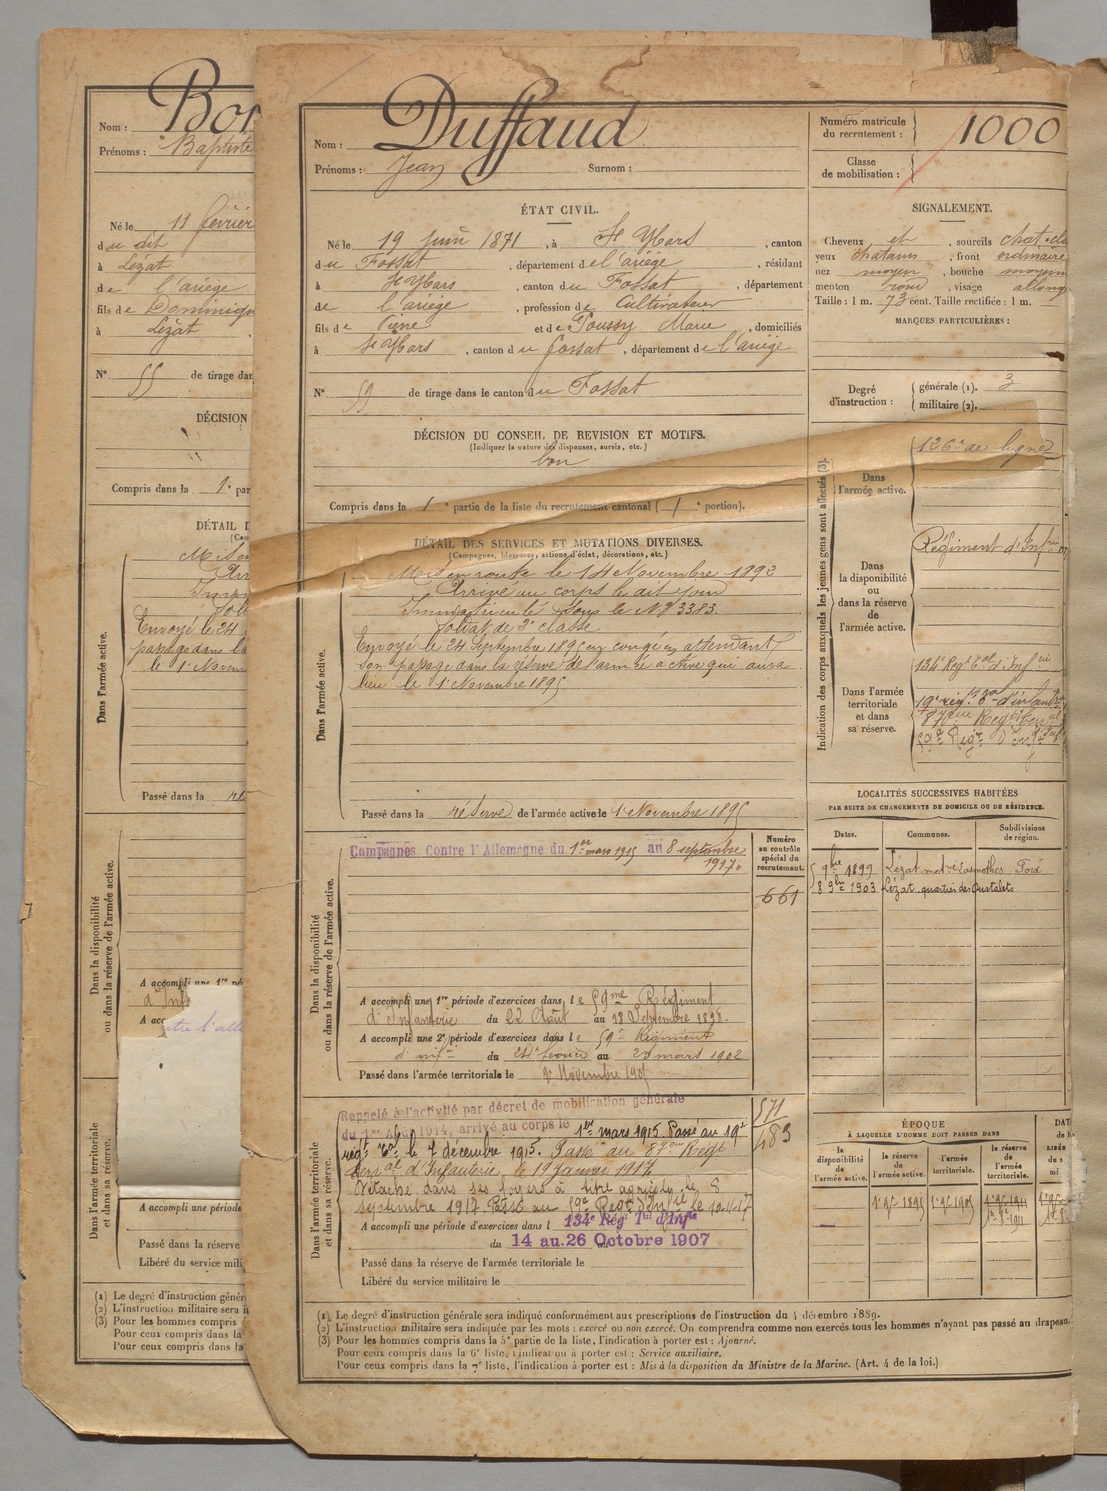 Nom : Bor
Prénoms : Baptiste
Né le 11 février
du dit
à Lézat
de l'ariège
fils de Dominiqu
à Lézat
N° 55 de tirage dan
DÉCISION
Compris dans la 1e par
DÉTAIL D
Mis en
Arri
Imm
Sol
Envoyé le 24
passage dans la
le 1er Novem
Dans l'armée active.
Passé dans la ré
Dans la disponibilité
ou dans la réserve de l'armée active.
A accompli une 1re pé
d'Inf
A acc
ntre l'alle
Dans l'armée territoriale
et dans sa réserve.
A accompli une période
Passé dans la réserve
Libéré du service mili
(1) Le degré d'instruction génér
(2) L'instruction militaire sera i
(3) Pour les hommes compris
Pour ceux compris dans la
Pour ceux compris dans la
Nom : Duffaud
Prénoms : Jean Surnom :
ÉTAT CIVIL.
Né le 19 juin 1871, à St Ybars, canton
du Fossat, département de l'ariège, résidant
à St Ybars, canton du Fossat, département
de l'ariège, profession de Cultivateur
fils de Pierre et de Soussy Marie, domiciliés
à St Ybars, canton du fossat, département de l'ariège
N° 59 de tirage dans le canton du Fossat
DÉCISION DU CONSEIL DE REVISION ET MOTIFS.
(Indiquer la nature des dispenses, sursis, etc.)
bon
Compris dans la 1e partie de la liste du recrutement cantonal (1e portion).
DÉTAIL DES SERVICES ET MUTATIONS DIVERSES.
(Campagnes, blessures, actions d'éclat, décorations, etc.)
Mis en route le 14 Novembre 1892
Arrivé au corps le dit jour
Immatriculé sous le N° 3383
Soldat de 2e classe
Envoyé le 24 Septembre 1895 en congé en attendant
son passage dans la réserve de l'armée active qui aura
lieu le 1er Novembre 1895
Dans l'armée active.
Passé dans la réserve de l'armée active le 1er Novembre 1895
Campagnes Contre l'Allemagne du 1er mars 1915 au 8 septembre
1917.
Numéro
au contrôle
spécial du
recrutement.
661
Dans la disponibilité
ou dans la réserve de l'armée active.
A accompli une 1re période d'exercices dans le 59me Régiment
d'Infanterie du 22 Août au 18 Septembre 1898.
A accompli une 2e période d'exercices dans le 59e Régiment
d'infie du 24 février au 23 mars 1902
Passé dans l'armée territoriale le 1er Novembre 1905
Rappelé à l'activité par décret de mobilisation générale
du 1er Août 1914, arrivé au corps le 1er mars 1915. Passé au 19e
regt Tal le 7 décembre 1915. Passé au 87eme Regt
terral d'Infanterie, le 19 Janvier 1917
Détaché dans ses foyers à titre agricole le 8
septembre 1917. Passé au 59e Regt d'Infie le 10-11-17
571
483
Dans l'armée territoriale
et dans sa réserve.
A accompli une période d'exercices dans l 134e Régt Tal d'Infie
du 14 au 26 Octobre 1907
Passé dans la réserve de l'armée territoriale le
Libéré du service militaire le
Numéro matricule
du recrutement : 1000
Classe
de mobilisation :
SIGNALEMENT.
Cheveux et, sourcils chat. cl
yeux chatains, front ordinaire
nez moyen, bouche moyenn
menton rond, visage allong
Taille : 1 m. 73 cent. Taille rectifiée : 1 m.
MARQUES PARTICULIÈRES :
Degré
d'instruction :
générale (1). 3
militaire (2).
Indication des corps auxquels les jeunes gens sont affectés (3).
Dans
l'armée active.
126e de ligne
Dans
la disponibilité
ou
dans la réserve
de
l'armée active.
Régiment d'Infrie
Dans l'armée
territoriale
et dans
sa réserve.
134e Regt Tal d'Infrie
19e reg. Tal d'infant
87eme Regt terral
59e Regt d'Inf
LOCALITÉS SUCCESSIVES HABITÉES
PAR SUITE DE CHANGEMENTS DE DOMICILE OU DE RÉSIDENCE.
Dates. Communes. Subdivisions
de région.
5 9bre 1899 Lézat met ve Lasmothes Foix
8 9bre 1903 Lézat quartier des Oustalets
ÉPOQUE
À LAQUELLE L'HOMME DOIT PASSER DANS
la
disponibilité
de
l'armée active.
la réserve
de
l'armée active.
l'armée
territoriale.
la réserve
de
l'armée
territoriale.
DAT
de la
LIBÉR
du s
mi
1er 9bre 1895 1er 9bre 1905 1er 9bre 1911
1er 8bre 1911
(1) Le degré d'instruction générale sera indiqué conformément aux prescriptions de l'instruction du 4 décembre 1889.
(2) L'instruction militaire sera indiquée par les mots : exercé ou non exercé. On comprendra comme non exercés tous les hommes n'ayant pas passé au drapeau.
(3) Pour les hommes compris dans la 5e partie de la liste, l'indication à porter est : Ajourné.
Pour ceux compris dans la 6e liste, l'indication à porter est : Service auxiliaire.
Pour ceux compris dans la 7e liste, l'indication à porter est : Mis à la disposition du Ministre de la Marine. (Art. 4 de la loi.)